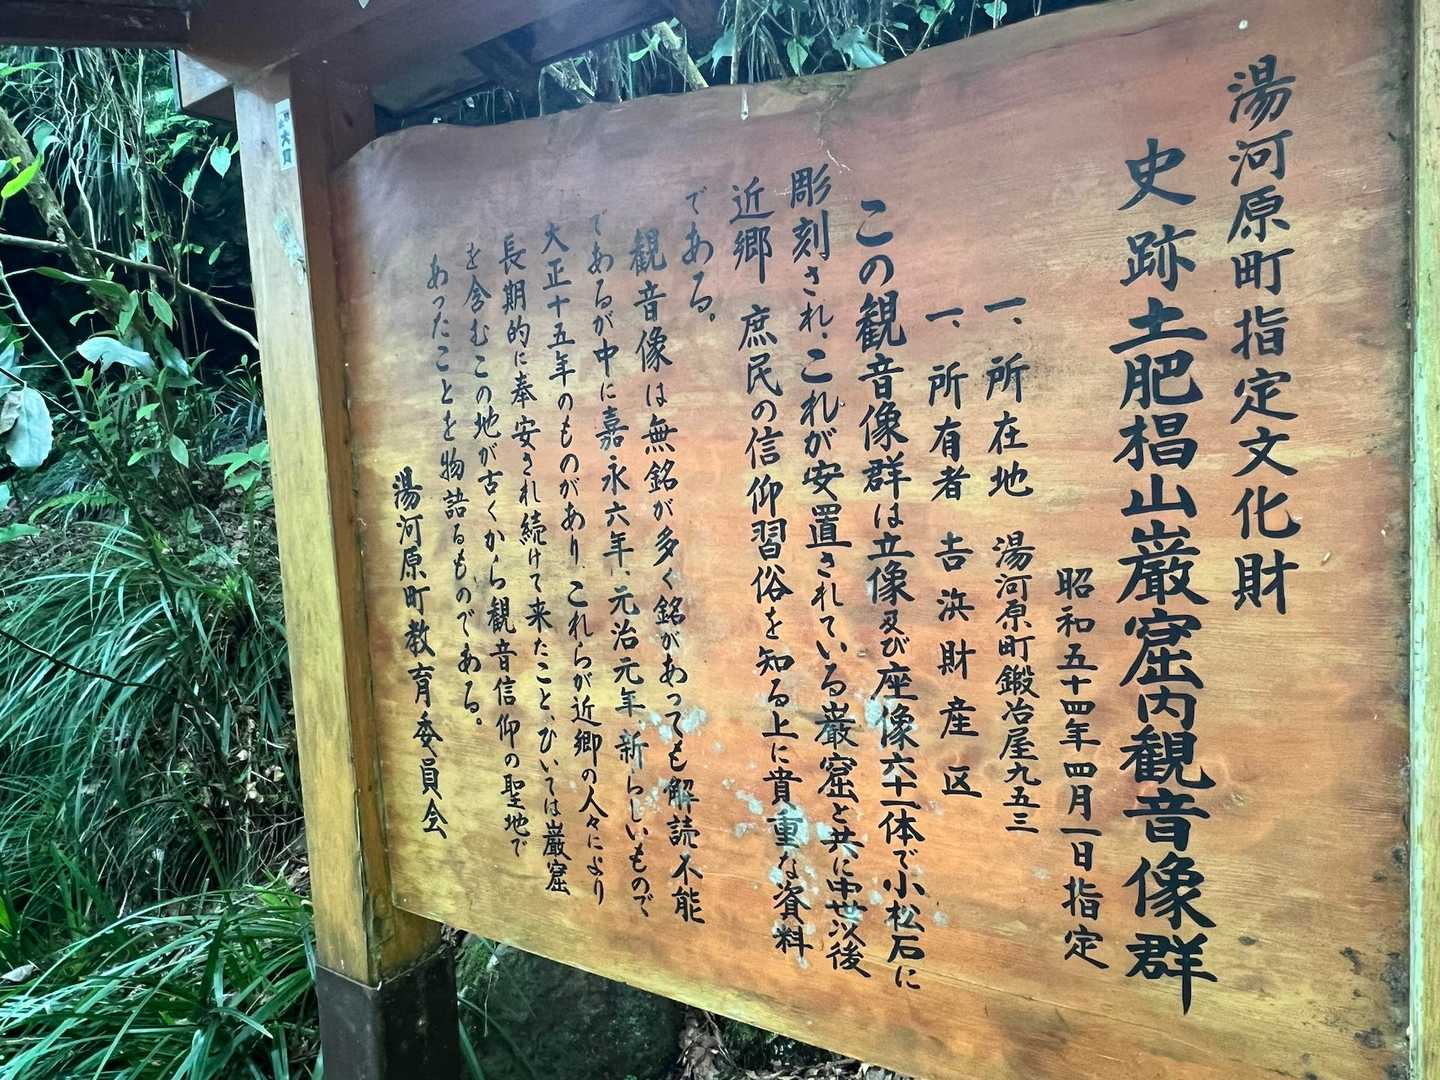 湯河原町指定文化財
史跡土肥椙山巌窟内観音像群
昭和五十四年四月一日指定
一、所在地　湯河原町鍛冶屋九五三
一、所有者　吉浜財産区
この観音像群は立像及び座像六十一体で小松石に
彫刻され、これが安置されている巌窟と共に中世以後
近郷 庶民の信仰習俗を知る上に貴重な資料
である。
観音像は無銘が多く銘があっても解読不能
であるが中に嘉永六年、元治元年、新らしいもので
大正十五年のものがあり、これらが近郷の人々により
長期的に奉安され続けて来たこと、ひいては巌窟
を含むこの地が古くから観音信仰の聖地で
あったことを物語るものである。
湯河原町教育委員会